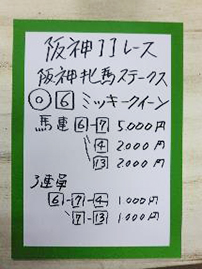 阪神11レース
阪神牝馬ステークス
◎ 6 ミッキークイーン
馬連 6-7 5,000円
4 2000円
13 2,000円
3連単
6-7-4 1,000円
7-13 1000円